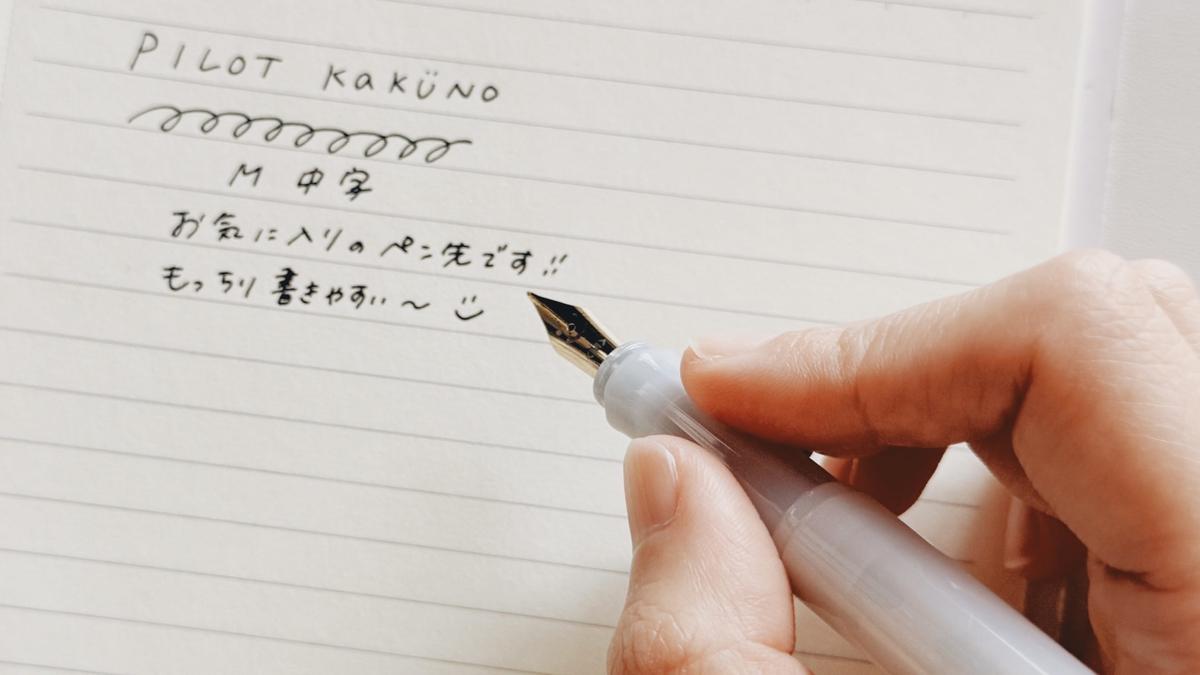 PILOT KaKüNo
M 中字
お気に入りのペン先です!!
もっちり書きやすい〜